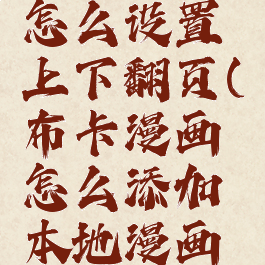 怎么设置
上下翻页(
布卡漫画
怎么添加
本地漫画